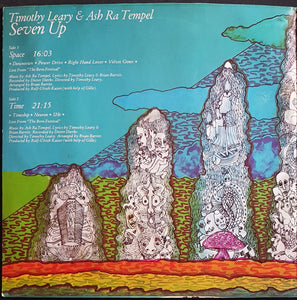 Timothy Leary & Ash Ra Tempel
Seven Up
Side 1
Space 16:03
• Downtown • Power Drive • Right Hand Lover • Velvet Genes •
Live From "The Bern Festival"
Music by Ash Ra Tempel, Lyrics by Timothy Leary & Brian Barritt.
Recorded by Dieter Dierks. Directed by Timothy Leary.
Arranged by Brian Barritt.
Produced by Rolf-Ulrich Kaiser (with help of Gille).
Side 2
Time 21:15
• Timeship • Neuron • She •
Live From "The Bern Festival"
Music by Ash Ra Tempel, Lyrics by Timothy Leary &
Brian Barritt. Recorded by Dieter Dierks.
Directed by Timothy Leary. Arranged by Brian Barritt.
Produced by Rolf-Ulrich Kaiser (with help of Gille).